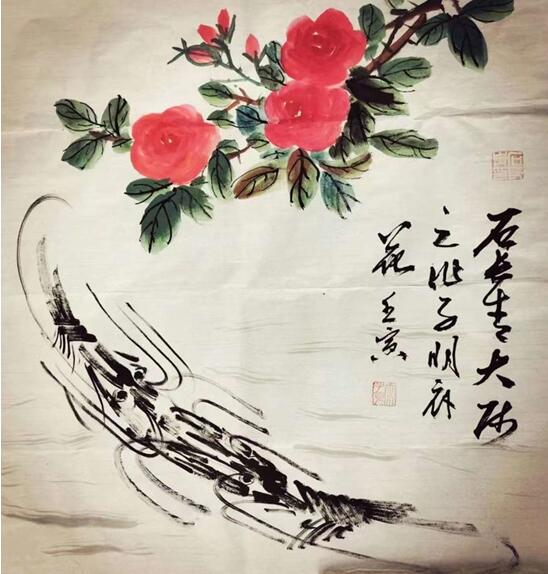 石长青大师
之作子明补
花 壬寅